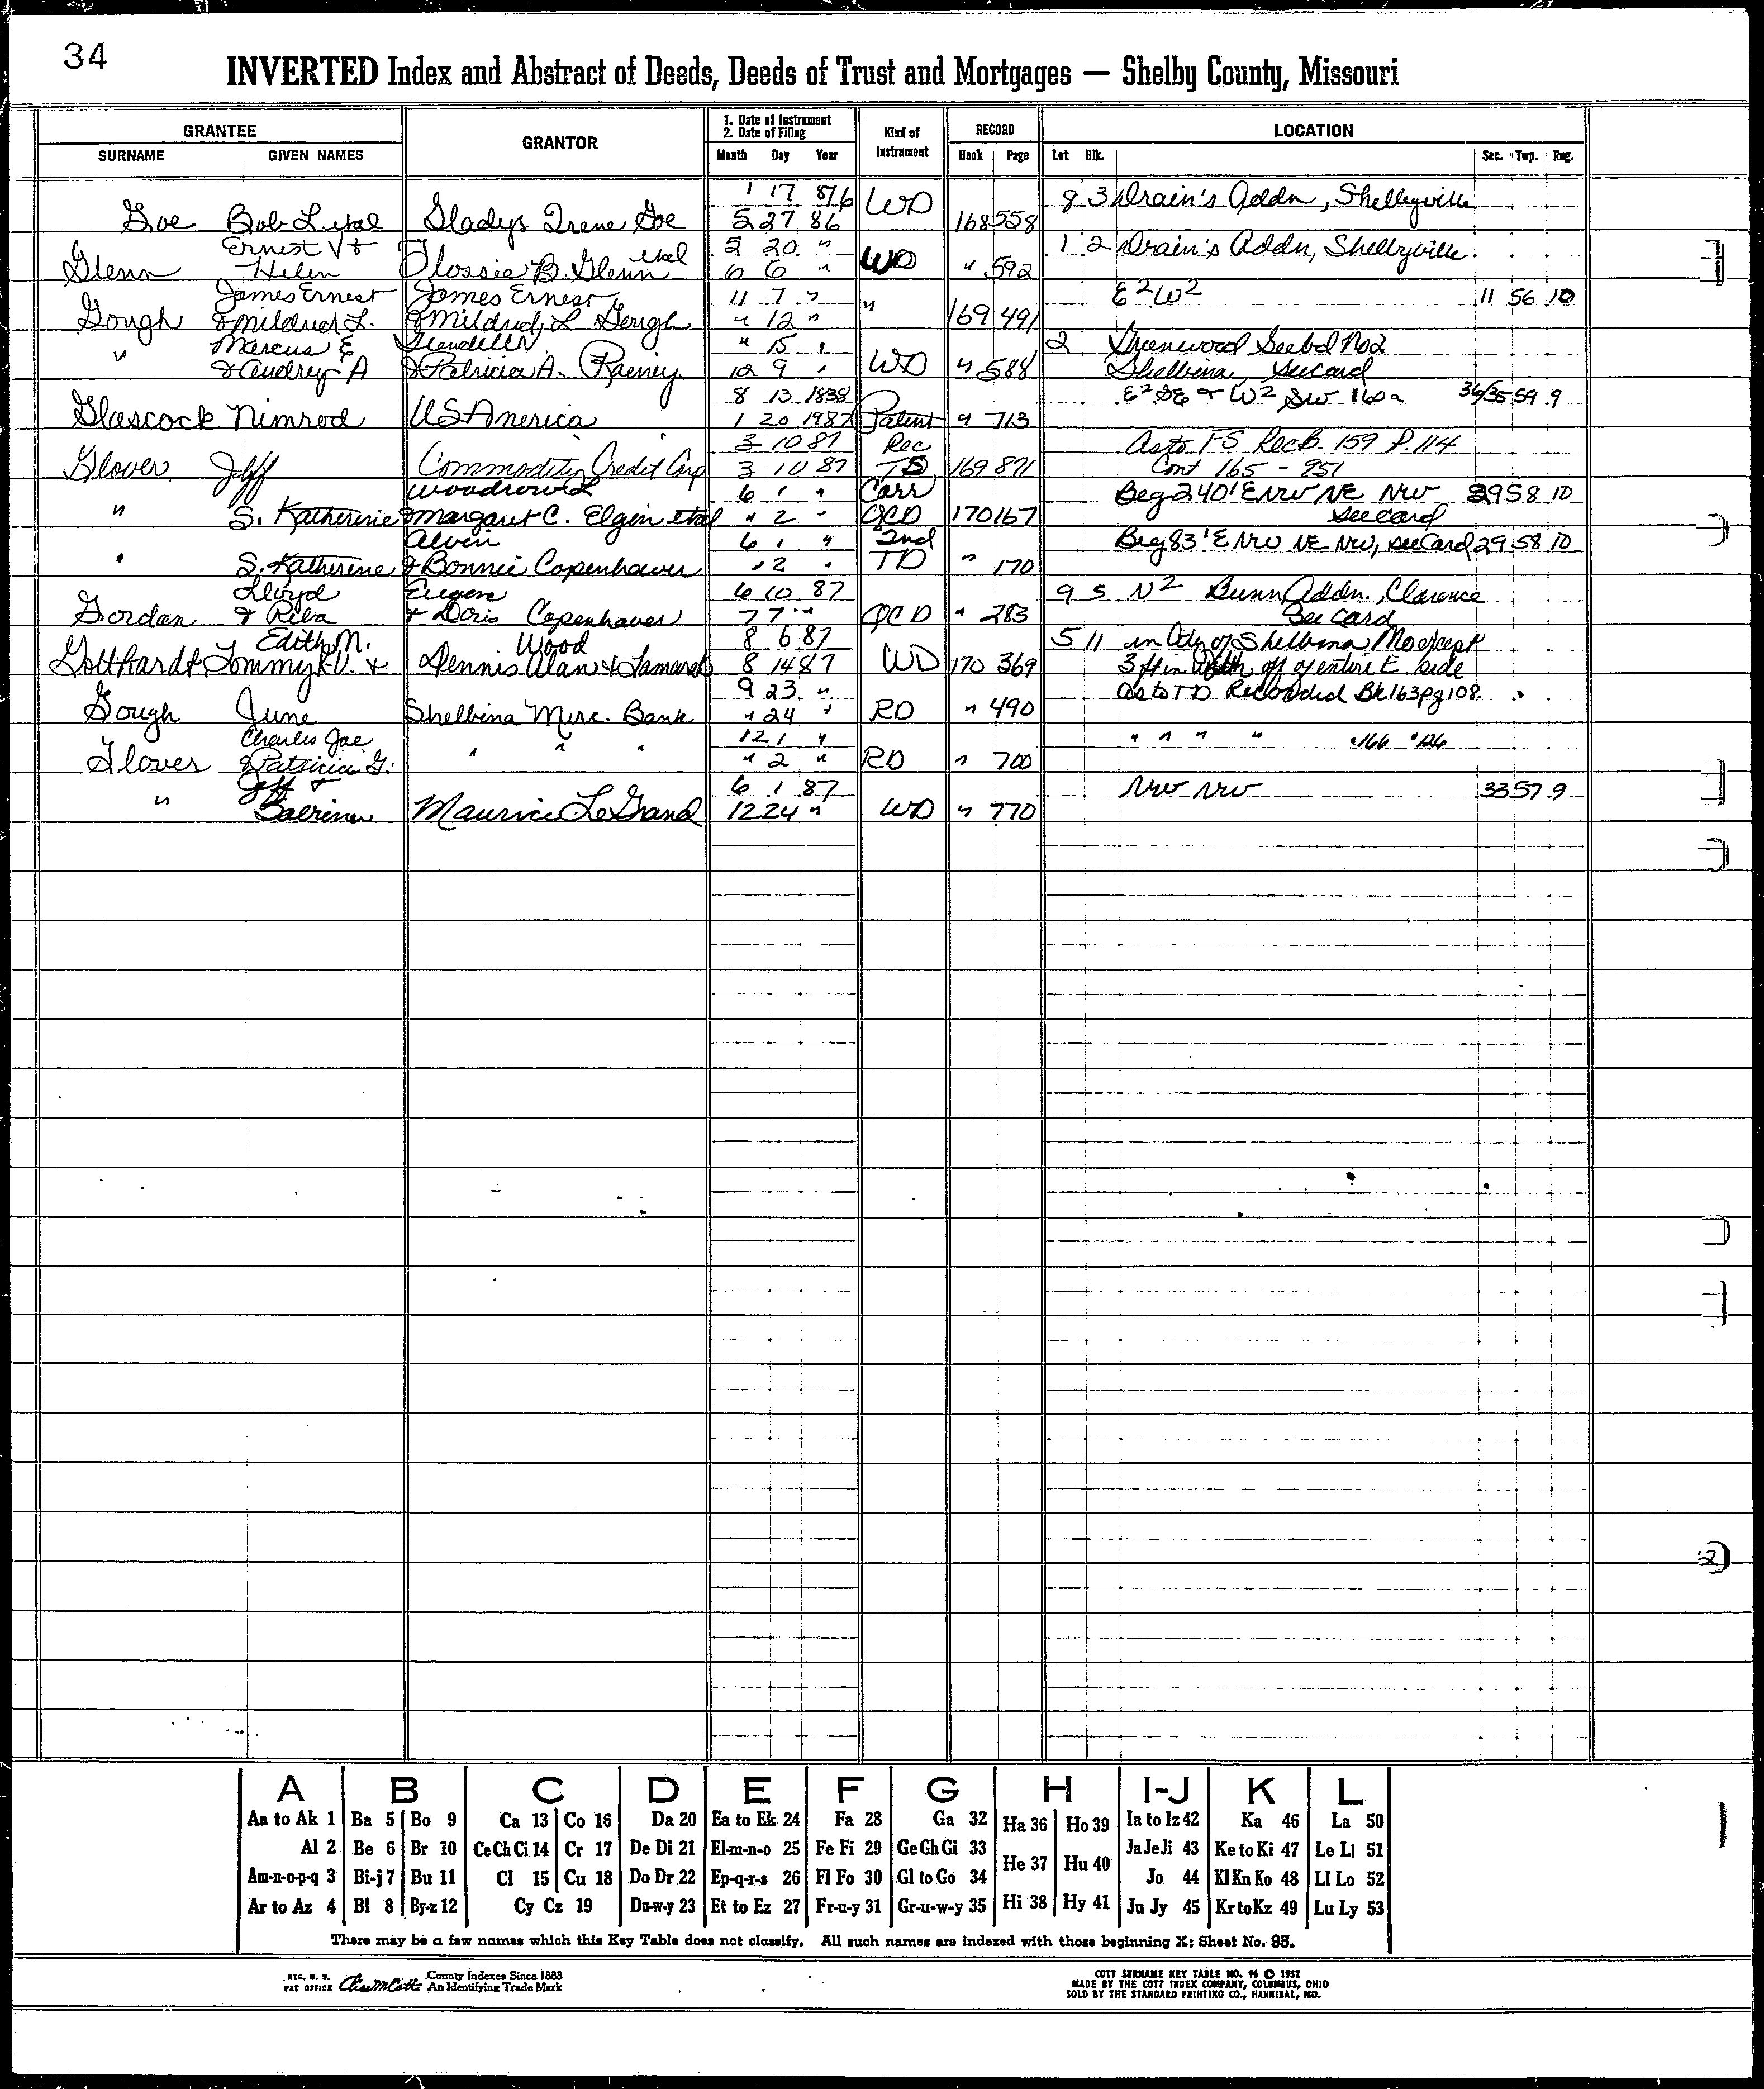 34
INVERTED Index and Abstract of Deeds, Deeds of Trust and Mortgages — Shelby County, Missouri
GRANTEE GRANTOR 1. Date of Instrument 2. Date of Filing Kind of Instrument RECORD LOCATION
SURNAME GIVEN NAMES Month Day Year Book Page Lot Blk. Sec. Twp. Rng.
1 17 86 8 3 Drain's Addn, Shelbyville
Goe Bob L etal Gladys Irene Goe 5 27 86 WD 168 558
Ernest V & etal 5 20 " 1 2 Drain's Addn, Shelbyville
Glenn Helen Flossie B. Glenn 6 6 " WD " 592
James Ernest James Ernest 11 7 " E2 W2 11 56 10
Gough & Mildred L. & Mildred L Gough " 12 " " 169 491
Marcus E " 15 " 2 Greenwood Subd No2
" & Audrey A & Patricia A. Rainey 12 9 " WD " 588 Shelbina, see card
8 13 1838 E2 SE & W2 SW 160a 36/35 59 9
Glascock Nimrod US America 1 20 1987 Patent " 713
3 10 87 Rec As to FS Rec B. 159 P. 114
Glover, Jeff Commodity Credit Corp 3 10 87 TD 169 871 Cont 165 - 951
Woodrow L 6 1 " Corr Beg 240' E NW NE NW 29 58 10
" S. Katherine & Margaret C. Elgin etal " 2 " QCD 170 167 see card
Alvin 6 1 " 2nd Beg 83' E NW NE NW, see card 29 58 10
" S. Katherine & Bonnie Copenhaver " 2 " TD " 170
Lloyd Eugene 6 10 87 9 5 N2 Bunn Addn., Clarence
Gordan & Reba & Doris Copenhaver 7 7 " QCD " 283 See Card
Edith M. Wood 8 6 87 5 11 in City of Shelbina Mo except
Gotthardt Tommy K.V. & Dennis Alan & Tamara 8 14 87 WD 170 369 3 ft in width off of entire E. side
9 23 " as to TD Recorded Bk 163 pg 108
Gough June Shelbina Merc. Bank " 24 " RD " 490
Charles Joe 12 1 " " " " " " 166 " 126
Glover & Patricia G. " " " " 2 " RD " 700
Jeff & 6 1 87 NW NW 33 57 9
" Sabrina Maurice LeGrand 12 24 " WD " 770
A B C D E F G H I-J K L
Aa to Ak 1 Ba 5 Bo 9 Ca 13 Co 16 Da 20 Ea to Ek 24 Fa 28 Ga 32 Ha 36 Ho 39 Ia to Iz 42 Ka 46 La 50
Al 2 Be 6 Br 10 Ce Ch Ci 14 Cr 17 De Di 21 El-m-n-o 25 Fe Fi 29 Ge Gh Gi 33 He 37 Hu 40 Ja Je Ji 43 Ke to Ki 47 Le Li 51
Am-n-o-p-q 3 Bi-j 7 Bu 11 Cl 15 Cu 18 Do Dr 22 Ep-q-r-s 26 Fl Fo 30 Gl to Go 34 Jo 44 Kl Kn Ko 48 Ll Lo 52
Ar to Az 4 Bl 8 By-z 12 Cy Cz 19 Du-w-y 23 Et to Ez 27 Fr-u-y 31 Gr-u-w-y 35 Hi 38 Hy 41 Ju Jy 45 Kr to Kz 49 Lu Ly 53
There may be a few names which this Key Table does not classify. All such names are indexed with those beginning X; Sheet No. 95.
REG. U. S. PAT OFFICE County Indexes Since 1888 An Identifying Trade Mark
COTT SURNAME KEY TABLE NO. 96 © 1952
MADE BY THE COTT INDEX COMPANY, COLUMBUS, OHIO
SOLD BY THE STANDARD PRINTING CO., HANNIBAL, MO.